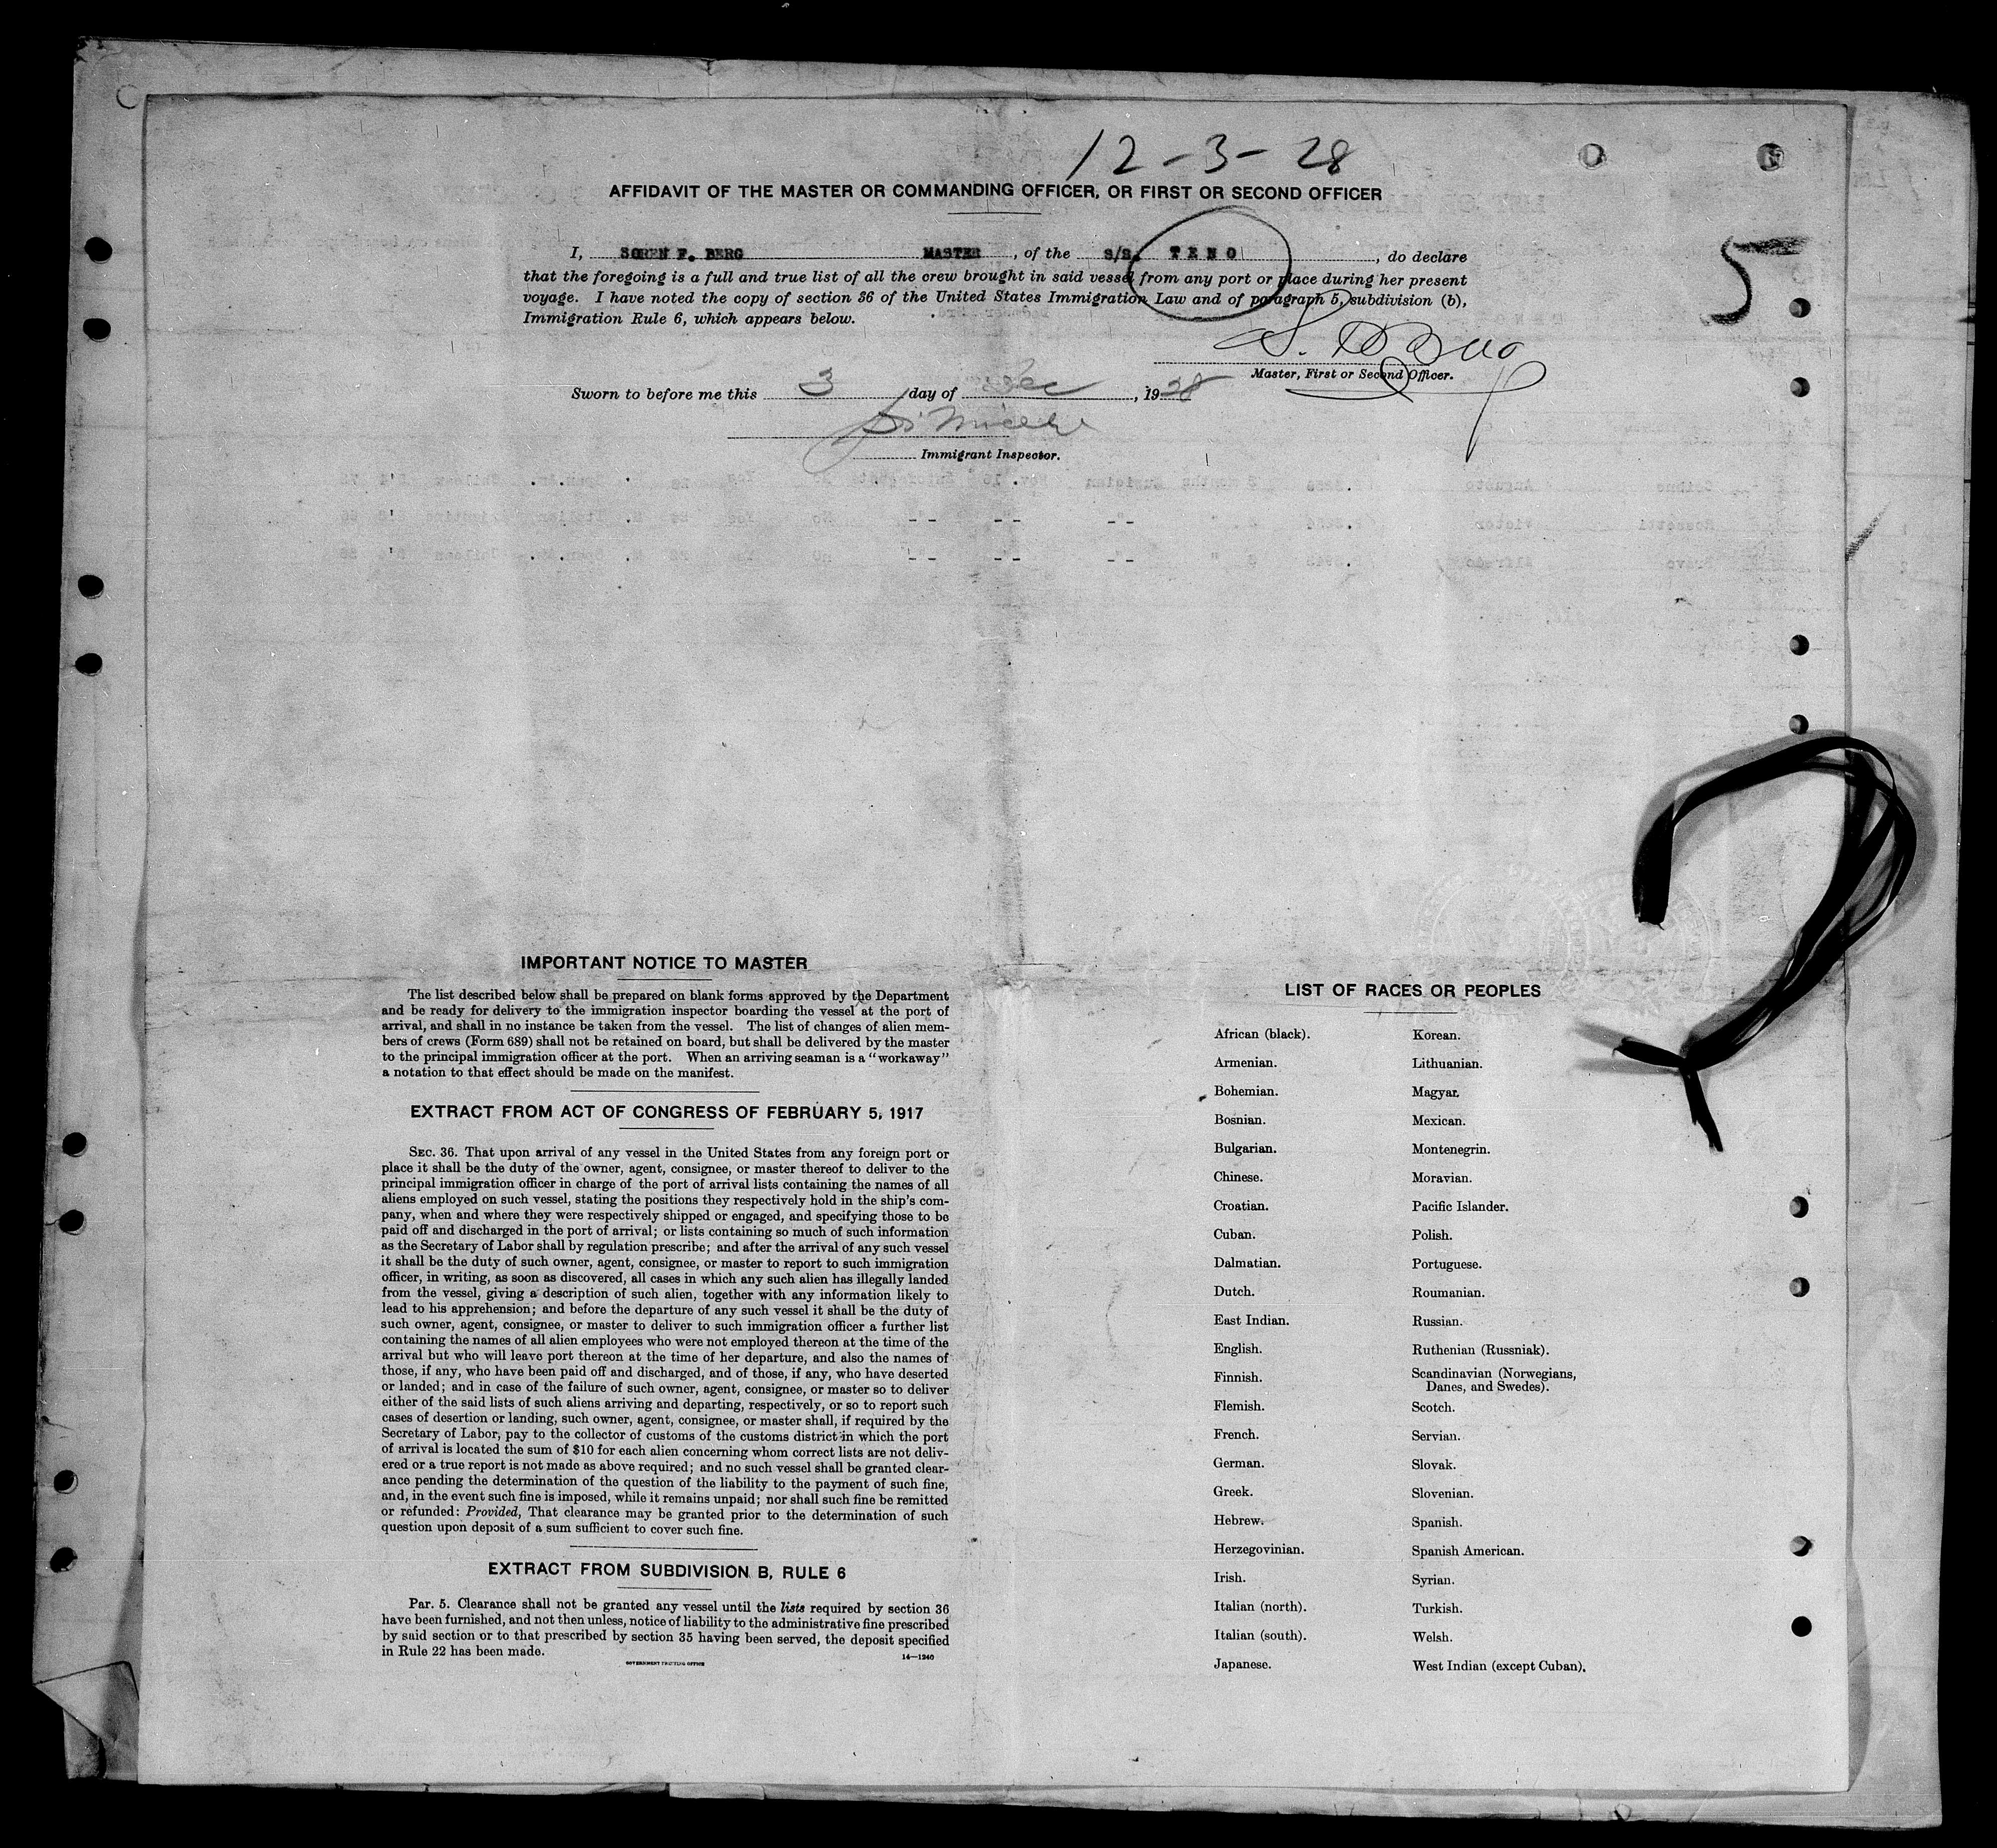 12-3-28
AFFIDAVIT OF THE MASTER OR COMMANDING OFFICER, OR FIRST OR SECOND OFFICER
5
I, SOREN F. BERG MASTER, of the S/S. TENO, do declare
that the foregoing is a full and true list of all the crew brought in said vessel from any port or place during her present
voyage. I have noted the copy of section 36 of the United States Immigration Law and of paragraph 5, subdivision (b),
Immigration Rule 6, which appears below.
Master, First or Second Officer.
Sworn to before me this 3 day of Dec, 1928
Immigrant Inspector.
IMPORTANT NOTICE TO MASTER
The list described below shall be prepared on blank forms approved by the Department
and be ready for delivery to the immigration inspector boarding the vessel at the port of
arrival, and shall in no instance be taken from the vessel. The list of changes of alien mem-
bers of crews (Form 689) shall not be retained on board, but shall be delivered by the master
to the principal immigration officer at the port. When an arriving seaman is a "workaway"
a notation to that effect should be made on the manifest.
EXTRACT FROM ACT OF CONGRESS OF FEBRUARY 5, 1917
SEC. 36. That upon arrival of any vessel in the United States from any foreign port or
place it shall be the duty of the owner, agent, consignee, or master thereof to deliver to the
principal immigration officer in charge of the port of arrival lists containing the names of all
aliens employed on such vessel, stating the positions they respectively hold in the ship's com-
pany, when and where they were respectively shipped or engaged, and specifying those to be
paid off and discharged in the port of arrival; or lists containing so much of such information
as the Secretary of Labor shall by regulation prescribe; and after the arrival of any such vessel
it shall be the duty of such owner, agent, consignee, or master to report to such immigration
officer, in writing, as soon as discovered, all cases in which any such alien has illegally landed
from the vessel, giving a description of such alien, together with any information likely to
lead to his apprehension; and before the departure of any such vessel it shall be the duty of
such owner, agent, consignee, or master to deliver to such immigration officer a further list
containing the names of all alien employees who were not employed thereon at the time of the
arrival but who will leave port thereon at the time of her departure, and also the names of
those, if any, who have been paid off and discharged, and of those, if any, who have deserted
or landed; and in case of the failure of such owner, agent, consignee, or master so to deliver
either of the said lists of such aliens arriving and departing, respectively, or so to report such
cases of desertion or landing, such owner, agent, consignee, or master shall, if required by the
Secretary of Labor, pay to the collector of customs of the customs district in which the port
of arrival is located the sum of $10 for each alien concerning whom correct lists are not deliv-
ered or a true report is not made as above required; and no such vessel shall be granted clear-
ance pending the determination of the question of the liability to the payment of such fine,
and, in the event such fine is imposed, while it remains unpaid; nor shall such fine be remitted
or refunded: Provided, That clearance may be granted prior to the determination of such
question upon deposit of a sum sufficient to cover such fine.
EXTRACT FROM SUBDIVISION B, RULE 6
Par. 5. Clearance shall not be granted any vessel until the lists required by section 36
have been furnished, and not then unless, notice of liability to the administrative fine prescribed
by said section or to that prescribed by section 35 having been served, the deposit specified
in Rule 22 has been made.
GOVERNMENT PRINTING OFFICE 14—1240
LIST OF RACES OR PEOPLES
African (black). Korean.
Armenian. Lithuanian.
Bohemian. Magyar.
Bosnian. Mexican.
Bulgarian. Montenegrin.
Chinese. Moravian.
Croatian. Pacific Islander.
Cuban. Polish.
Dalmatian. Portuguese.
Dutch. Roumanian.
East Indian. Russian.
English. Ruthenian (Russniak).
Finnish. Scandinavian (Norwegians,
Danes, and Swedes).
Flemish. Scotch.
French. Servian.
German. Slovak.
Greek. Slovenian.
Hebrew. Spanish.
Herzegovinian. Spanish American.
Irish. Syrian.
Italian (north). Turkish.
Italian (south). Welsh.
Japanese. West Indian (except Cuban).